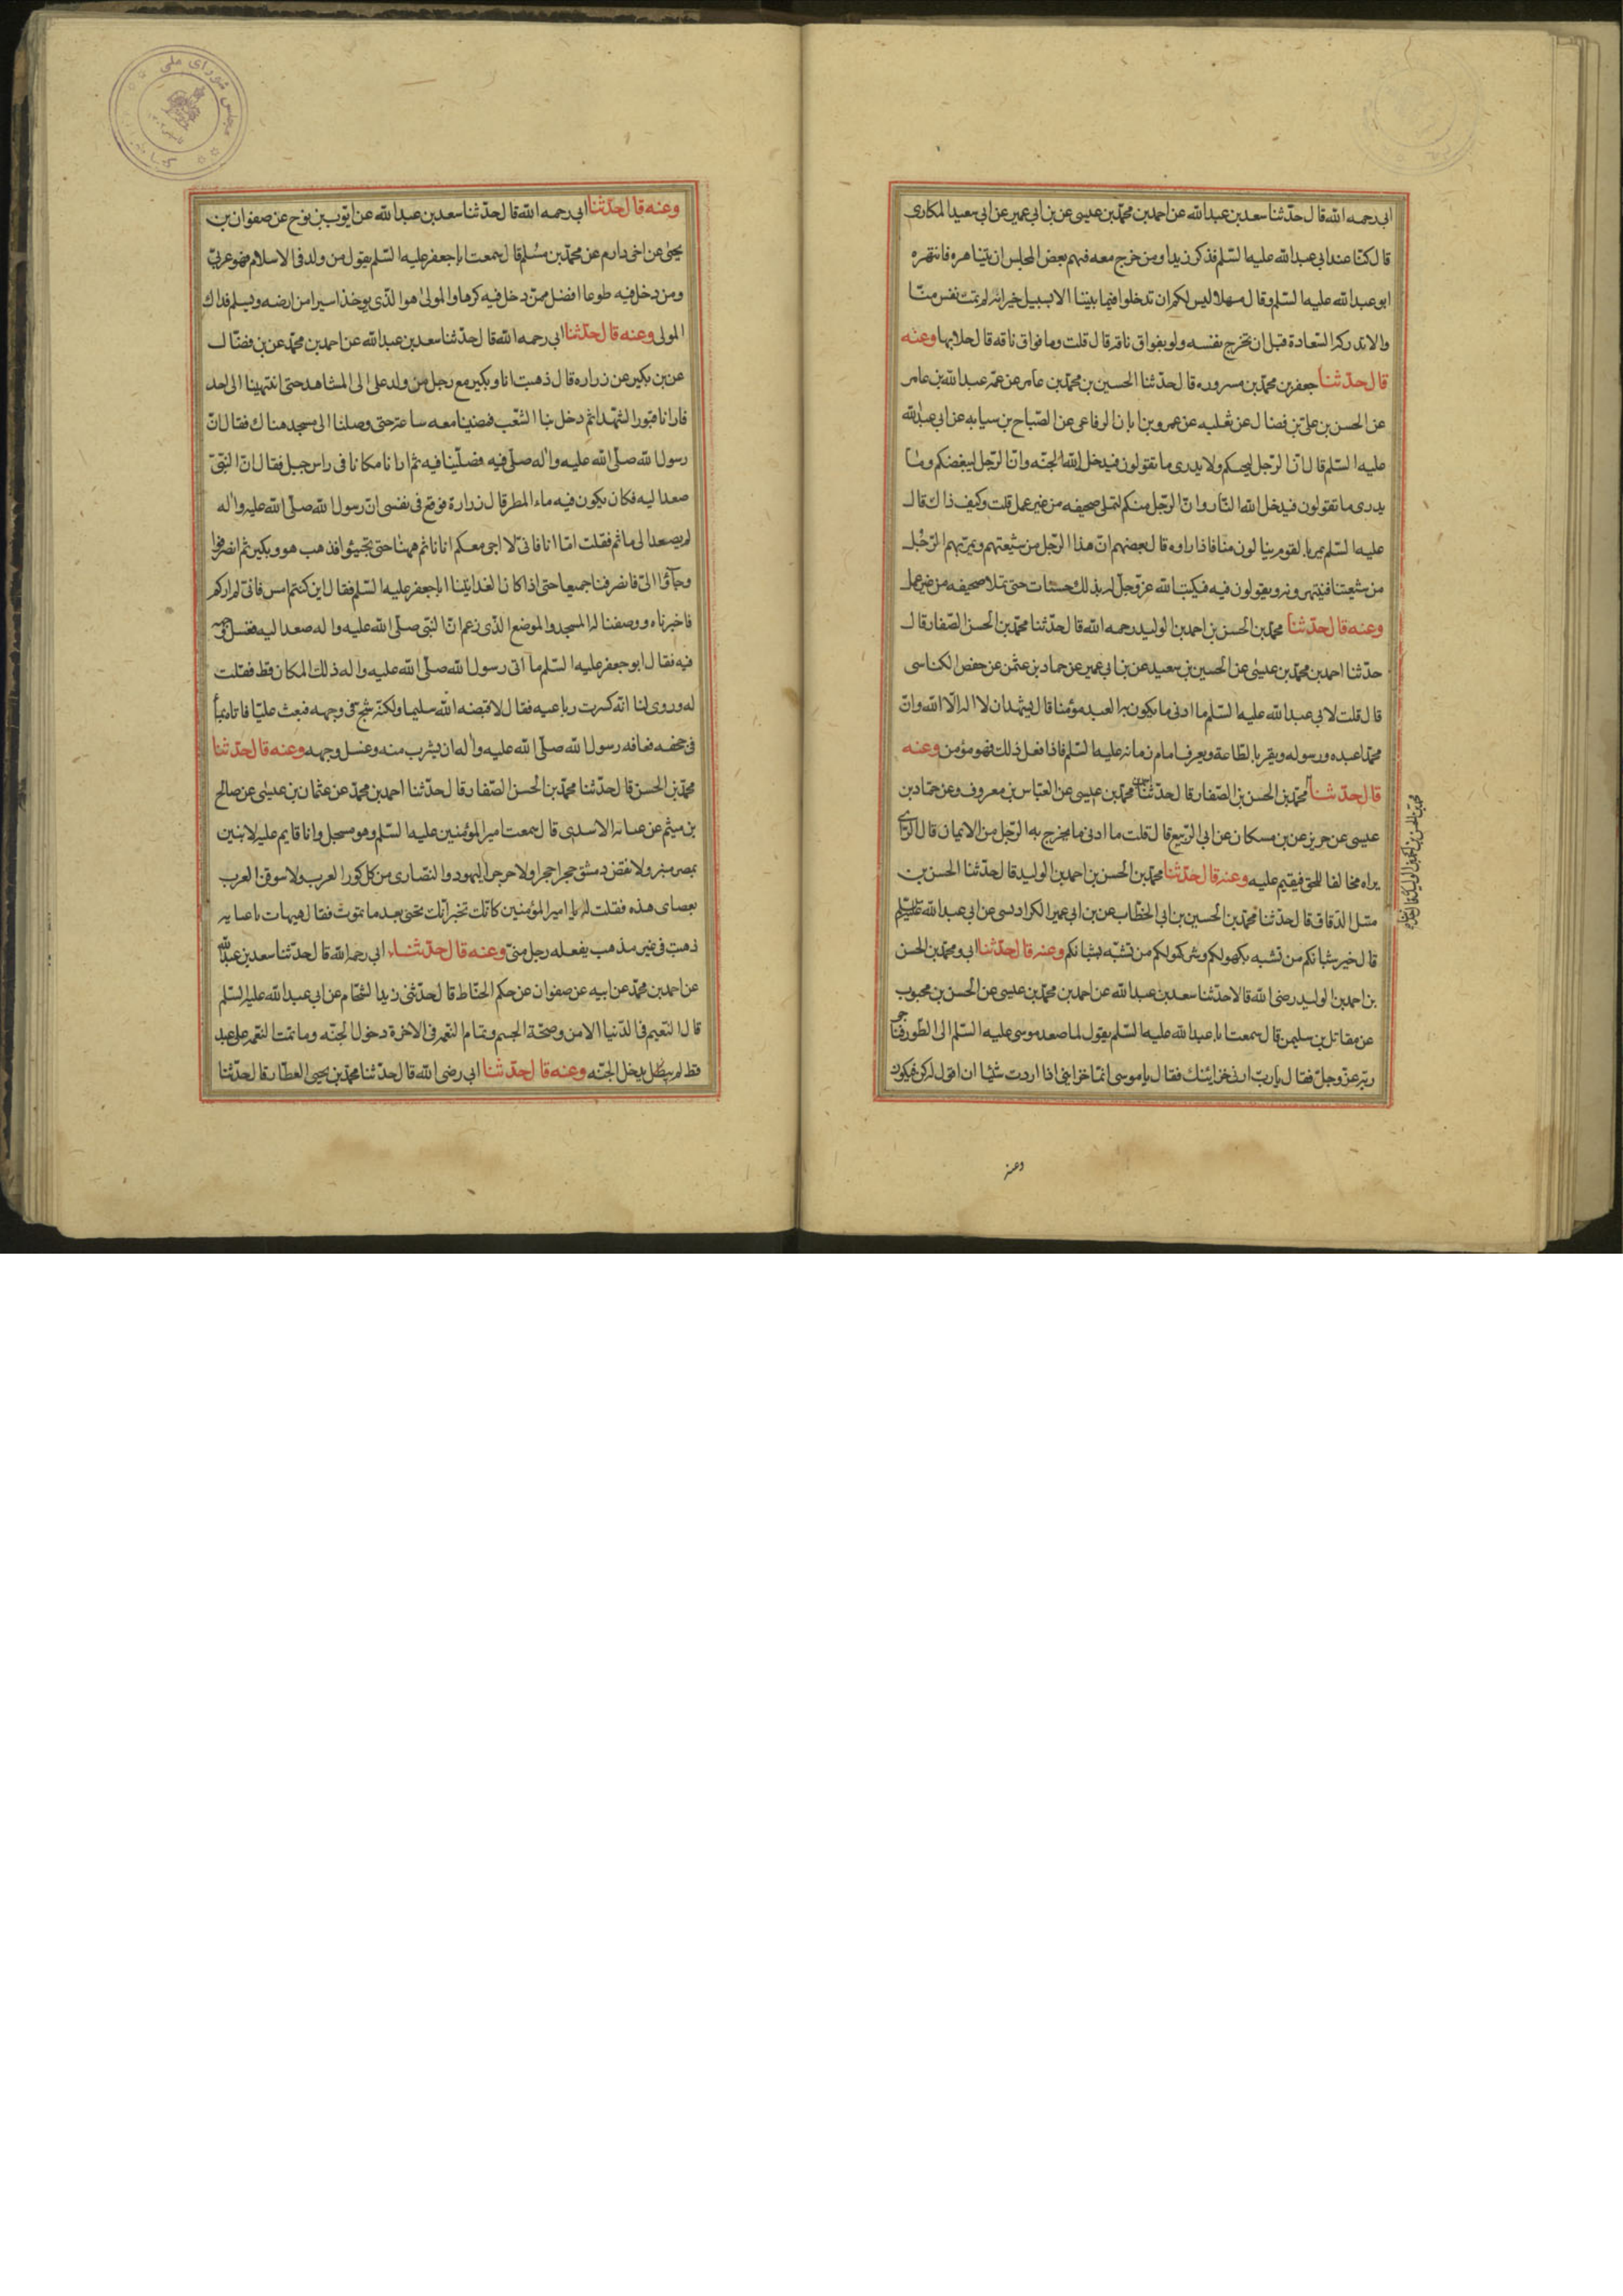 ابى رحمه الله قال حدّثنا سعد بن عبد الله عن احمد بن محمّد بن عيسى عن بن ابى عمير عن ابى سعيد المكارى
قال كنّا عند ابى عبد الله عليه السّلم فذكر زيد او من خرج معه فهم بعض المجلس ان يتناهره فانتهره
ابو عبد الله عليه السّلم وقال مهلا ليس لكم ان تدخلوا فيما بيننا الا بسبيل خير انه لم تمت نفس منّا
والا تدركه السّعادة قبل ان تخرج نفسه ولو بفواق ناقه قال قلت وما فواق ناقه قال حلابها وعنه
قال حدّثنا جعفر بن محمّد بن مسروره قال حدّثنا الحسين بن محمّد بن عامر عن عمّه عبد الله بن عامر
عن الحسن بن علىّ بن فضال عن ثعلبه عن عمرو بن ابان الرفاعى عن الصّباح بن سيابه عن ابى عبد الله
عليه السّلم قال انّ الرّجل ليحبّكم ولا يدرى ما تقولون فيدخله الله الجنّه وانّ الرّجل ليبغضكم وما
يدرى ما تقولون فيدخله الله النّار وانّ الرّجل منكم لتملى صحيفه من غير عمل قلت وكيف ذاك قال
عليه السّلم يمر بالقوم ينالون منّا فاذا راوه قال بعضهم انّ هذا الرّجل من شيعتهم ويمرّ بهم الرّجل
من شيعتنا فينهرونه ويقولون فيه فيكتب الله عزّ وجلّ له بذلك حسنات حتى تملا صحيفه من غير عمل
وعنه قال حدّثنا محمّد بن الحسن بن احمد بن الوليد رحمه الله قال حدّثنا محمّد بن الحسن الصّفار قال
حدّثنا احمد بن محمّد بن عيسى عن الحسين بن سعيد عن بن ابى عمير عن حماد بن عثمن عن حفص الكناسى
قال قلت لابى عبد الله عليه السّلم ما ادنى ما يكون به العبد مؤمنا قال يشهد ان لا اله الّا الله وانّ
محمّدا عبده ورسوله ويقر بالطّاعة ويعرف امام زمانه عليه السّلم فاذا فعل ذلك فهو مؤمن وعنه
قال حدّثنا محمّد بن الحسن بن الصّفار قال حدّثنا محمّد بن عيسى عن العبّاس بن معروف وعن حمّاد بن
عيسى عن حريز عن بن مسكان عن ابى الرّبيع قال قلت ما ادنى ما يخرج به الرّجل من الايمان قال الرّاى
يراه مخالفا للحق فيقيم عليه وعنه قال حدّثنا محمّد بن الحسن بن احمد بن الوليد قال حدّثنا الحسن بن
متل الدّقاق قال حدّثنا محمّد بن الحسين بن ابى الخطّاب عن بن ابى عمير الكرادسى عن ابى عبد الله عليه السّلم
قال خير شبانكم من تشبه بكهولكم وشر كهولكم من تشبّه بشبانكم وعنه قال حدّثنا ابى ومحمّد بن الحسن
بن احمد بن الوليد رضى الله قالا حدّثنا سعد بن عبد الله عن احمد بن محمّد بن عيسى عن الحسن بن محبوب
عن مقاتل بن سليمن قال سمعت ابا عبد الله عليه السّلم يقول لما صعد موسى عليه السّلم الى الطّور فناجى
ربّه عزّ وجلّ فقال يا ربّ ارنى خزائنك فقال يا موسى انّما خزاينى اذا اردت شيئا ان اقول له كن فيكون
وعنه
وعنه قال حدّثنا ابى رحمه الله قال حدّثنا سعد بن عبد الله عن ايّوب بن نوح عن صفوان بن
يحيى عن اخى دارم عن محمّد بن مسلم قال سمعت ابا جعفر عليه السّلم يقول من ولد فى الاسلام فهو عربىّ
ومن دخل فيه طوعا افضل ممّن دخل فيه كرها والمولى هو الّذى يوخذ اسيرا من ارضه ويسلم فذاك
المولى وعنه قال حدّثنا ابى رحمه الله قال حدّثنا سعد بن عبد الله عن احمد بن محمّد عن بن فضّال
عن بن بكير عن زراره قال ذهبت انا وبكير مع رجل من ولد على الى المشاهد حتى انتهينا الى احد
فارانا قبور الشّهداء ثم دخل بنا الشّعب فمضينا معه ساعة حتى وصلنا الى مسجد هناك فقال انّ
رسول الله صلّى الله عليه واله صلّى فيه فصلّينا فيه ثم ارانا مكانا فى راس جبل فقال انّ النّبىّ
صعد اليه فكان يكون فيه ماء المطر قال زرارة فوقع فى نفسى انّ رسول الله صلّى الله عليه واله
لم يصعد الى ما ثم فقلت امّا انا فانى لا اجى معكم انا نائم ههنا حتى تجيئوا فذهب هو وبكير ثم انصرفوا
وجاؤا الىّ فانصرفنا جميعا حتى اذا كان الغد اتينا ابا جعفر عليه السّلم فقال اين كنتم امس فانى لم اركم
فاخبرناه ووصفنا له المسجد والموضع الّذى زعم انّ النّبى صلّى الله عليه واله صعد اليه فغسل وجهه
فيه فقال ابو جعفر عليه السّلم ما اتى رسول الله صلّى الله عليه واله ذلك المكان قط فقلت
له وروى لنا انّه كسرت رباعيه فقال لا قبضه الله سليما ولكنّه شج فى وجهه فبعث عليّا فاتاه بماء
فى حجفه فعافه رسول الله صلّى الله عليه واله ان يشرب منه وغسل وجهه وعنه قال حدّثنا
محمّد بن الحسن قال حدّثنا محمّد بن الحسن الصّفار قال حدّثنا احمد بن محمّد عن عثمان بن عيسى عن صالح
بن ميثم عن عبايه الاسدى قال سمعت امير المؤمنين عليه السّلم وهو مسجل وانا قايم عليه لابنين
بمصر منبر ولانقضن دمشق حجرا حجرا ولاخرجن اليهود والنّصارى من كل كور العرب ولاسوقن العرب
بعصاى هذه فقلت له يا امير المؤمنين كانّك تخبر انّك تحيى بعد ما تموت فقال هيهات يا عبايه
ذهبت فى غير مذهب يفعله رجل منّى وعنه قال حدّثنا ابى رحمه الله قال حدّثنا سعد بن عبد الله
عن احمد بن محمّد عن ابيه عن صفوان عن حكم الحنّاط قال حدّثنى زيد الشّحّام عن ابى عبد الله عليه السّلم
قال النّعيم فى الدّنيا الامن وصحّة الجسم وتمام النّعمه فى الاخرة دخول الجنّه وما تمت النّعمه على عبد
قط لم يدخل الجنّه وعنه قال حدّثنا ابى رضى الله قال حدّثنا محمّد بن يحيى العطّار قال حدّثنا
مجلس شوراى ملى